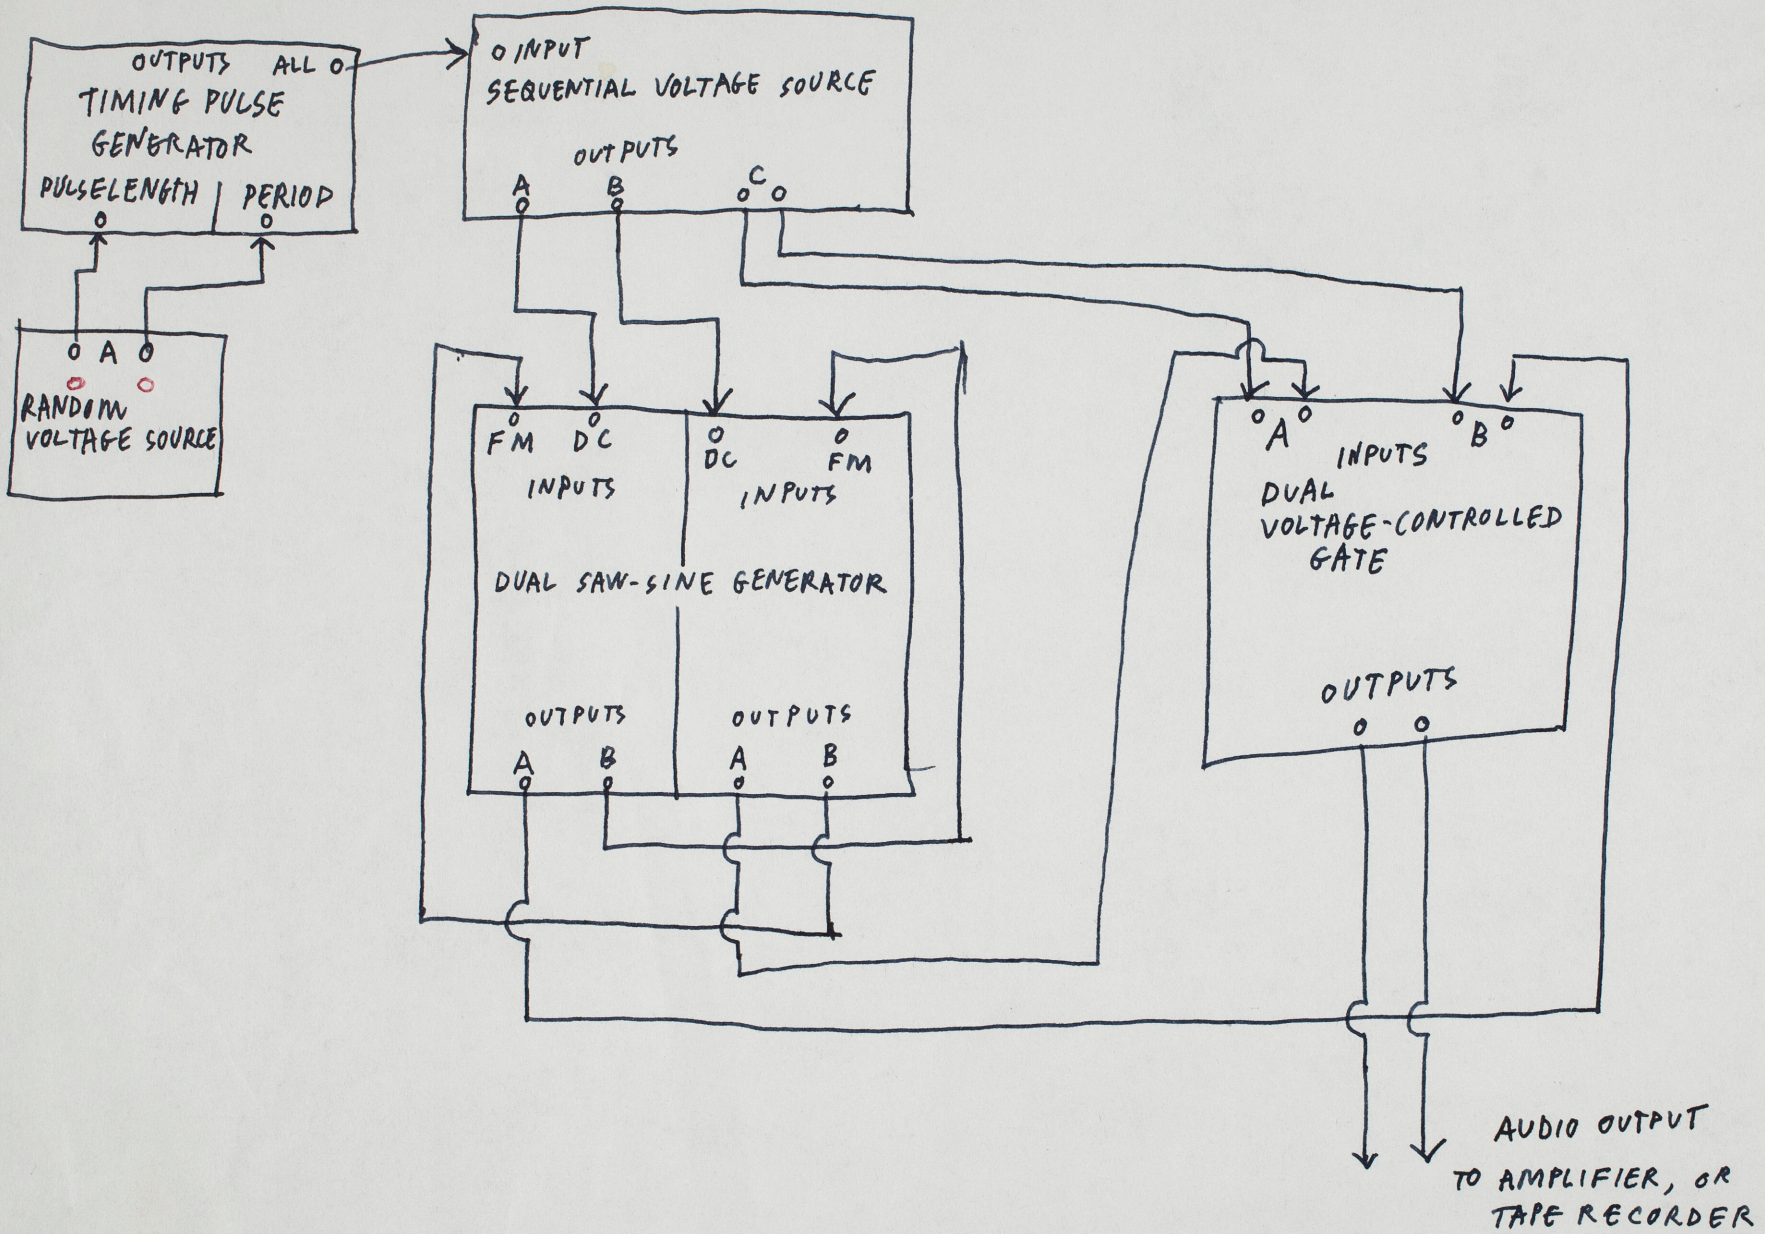 OUTPUTS ALL
TIMING PULSE
GENERATOR
PULSELENGTH PERIOD
A
RANDOM
VOLTAGE SOURCE
INPUT
SEQUENTIAL VOLTAGE SOURCE
OUTPUTS
A B C
FM DC
INPUTS
DC FM
INPUTS
DUAL SAW-SINE GENERATOR
OUTPUTS
A B
OUTPUTS
A B
A B
INPUTS
DUAL
VOLTAGE-CONTROLLED
GATE
OUTPUTS
AUDIO OUTPUT
TO AMPLIFIER, OR
TAPE RECORDER